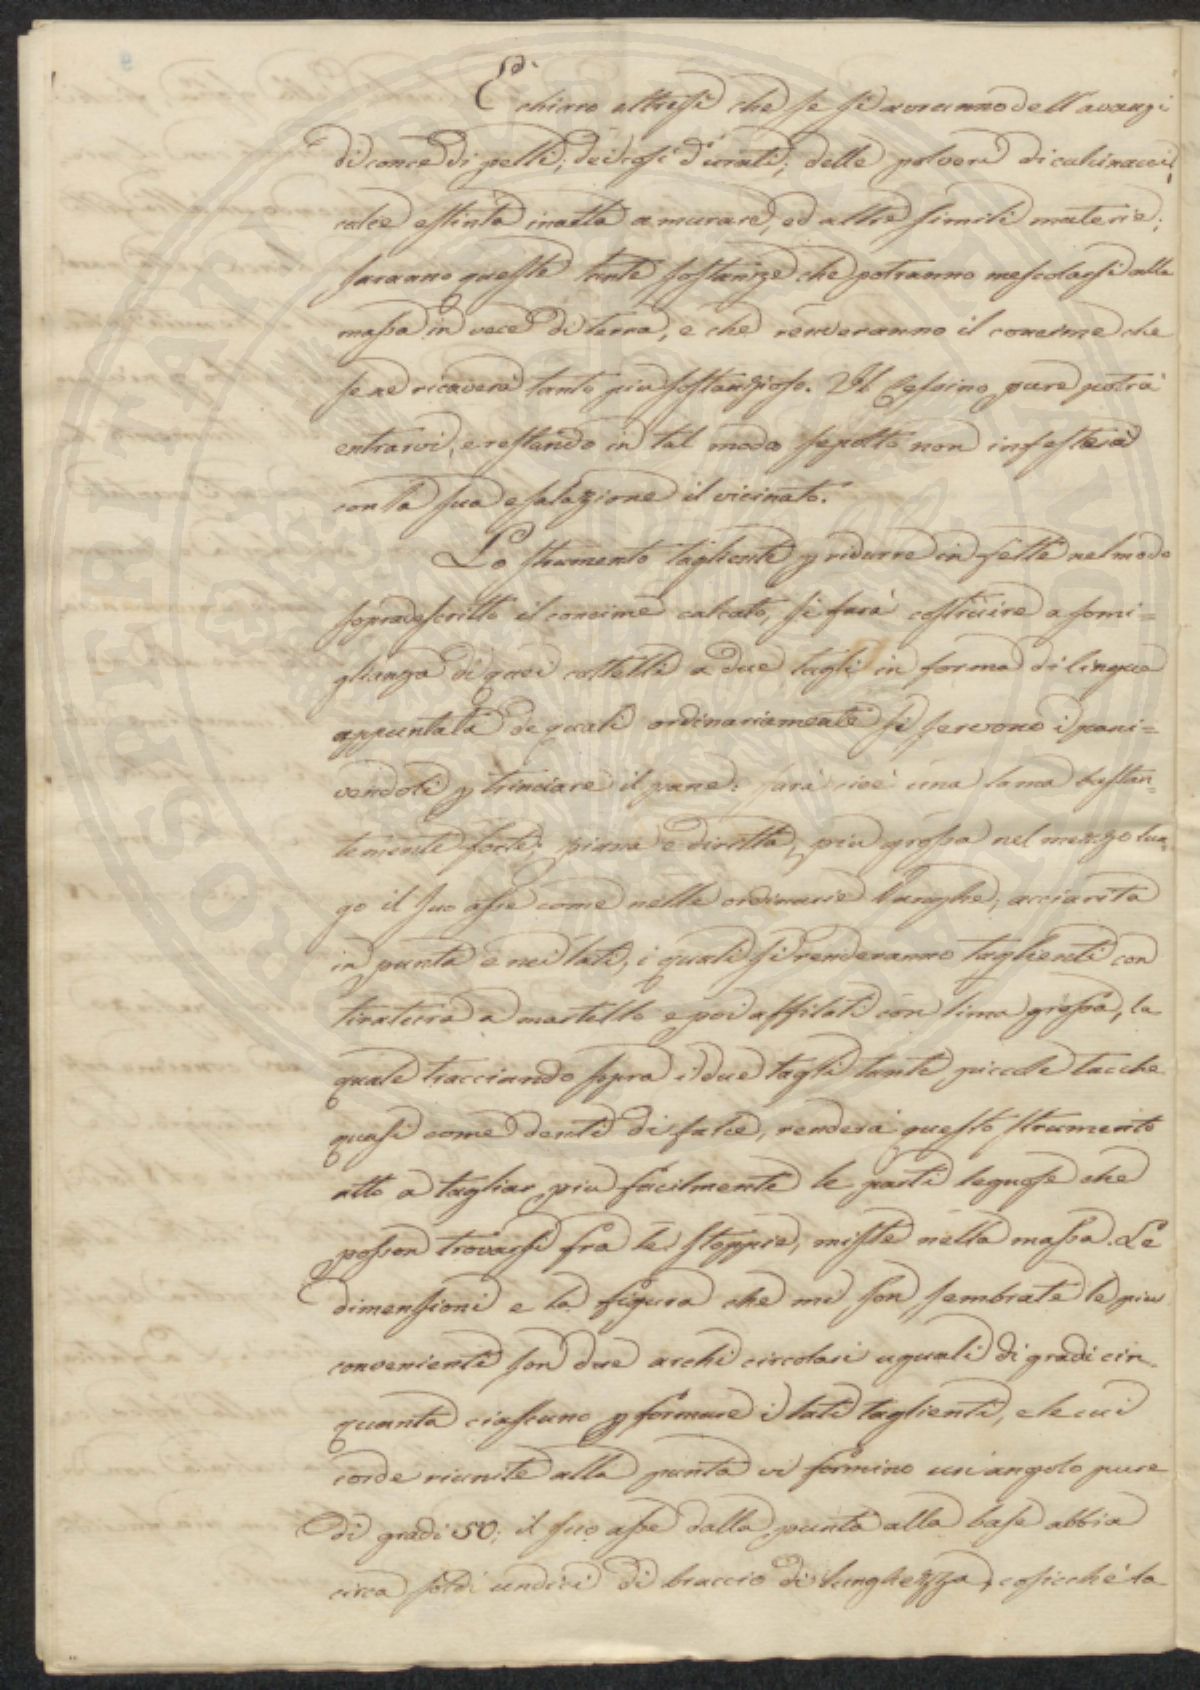 E chiaro altresì che se si avranno dell'avanzi
di conce di pelli; dei così d'urati; delle polveri di calcinacci,
calce estinta inatta a murare, ed altre simili materie;
saranno queste tante sostanze che potranno mescolarsi alla
massa in vece di terra, e che renderanno il concime che
se ne ricaverà tanto più sostanzioso. Il Cessino pure potrà
entrarvi, e restando in tal modo sepolto non infesterà
con la sua esalazione il vicinato.
Lo strumento tagliente p ridurre in fette nel modo
sopradescritto il concime calcato, si farà costruire a somi=
glianza di quei coltelli a due tagli in forma di lingua
appuntata de quali ordinariamente si servono i pani=
vendoli p trinciare il pane: sarà cioè una lama bastan=
temente forte; piana e diretta, più grossa nel mezzo lun=
go il suo asse come nelle ordinarie Vanghe, acciarita
in punta e nei lati, i quali si renderanno taglienti con
tiratura a martello e poi affilati con lima grossa, la
quale tracciando sopra i due tagli tante piccole tacche
quasi come denti di falce, renderà questo strumento
atto a tagliar più facilmente le parti legnose che
posson trovarsi fra le stoppie, miste nella massa. Le
dimensioni e la figura che mi son sembrate le più
convenienti son due archi circolari uguali di gradi cin=
quanta ciascuno p formare i lati taglienti, e le cui
corde riunite alla punta vi formino un'angolo pure
di gradi 50; il suo asse dalla punta alla base abbia
circa soldi undici di braccio di lunghezza, cosicchè la
SOSPIERITATI